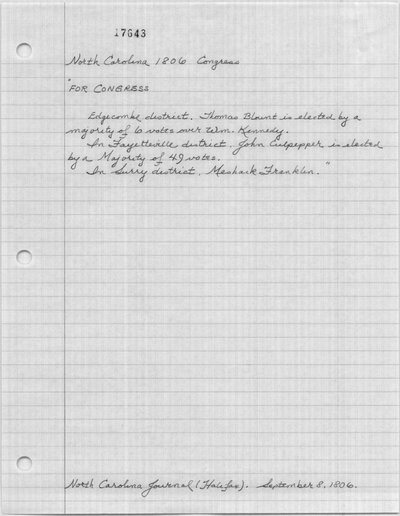 17643
North Carolina 1806 Congress
"FOR CONGRESS
Edgecombe district. Thomas Blount is elected by a
majority of 6 votes over Wm. Kennedy.
In Fayetteville district, John Culpepper is elected
by a Majority of 49 votes.
In Surry district, Meshack Franklin."
North Carolina Journal (Halifax). September 8, 1806.